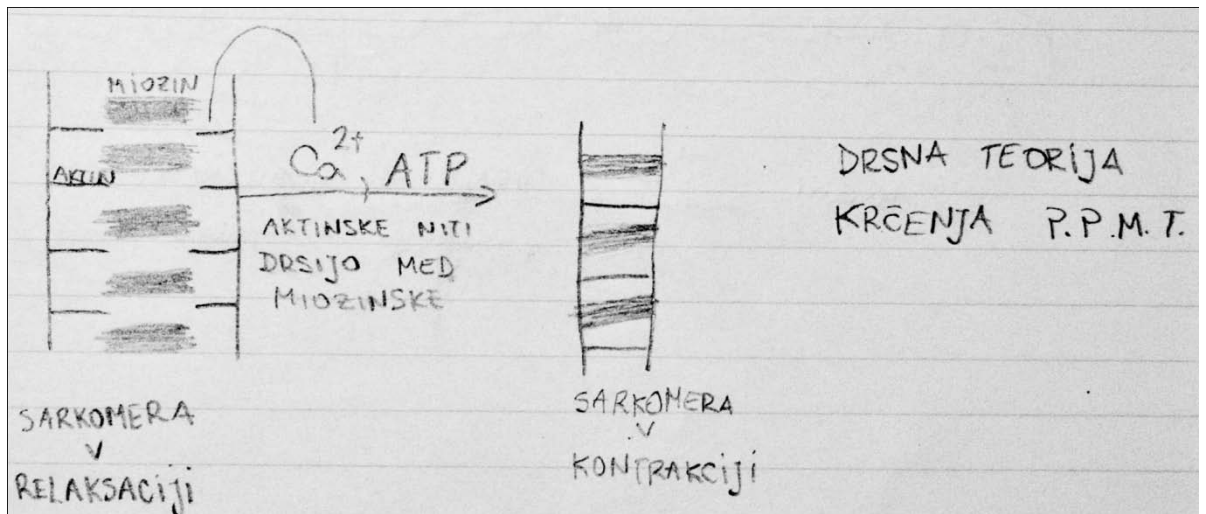 MIOZIN
AKTIN
Ca²⁺, ATP
AKTINSKE NITI
DRSIJO MED
MIOZINSKE
SARKOMERA
V
RELAKSACIJI
SARKOMERA
V
KONTRAKCIJI
DRSNA TEORIJA
KRČENJA P.P.M.T.